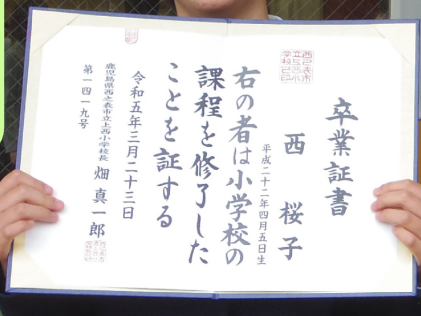 卒業証書
西 桜子
平成二十二年四月五日生
右の者は小学校の
課程を修了した
ことを証する
令和五年三月二十三日
鹿児島県西之表市立上西小学校長 畑 真一郎
第一四一九号